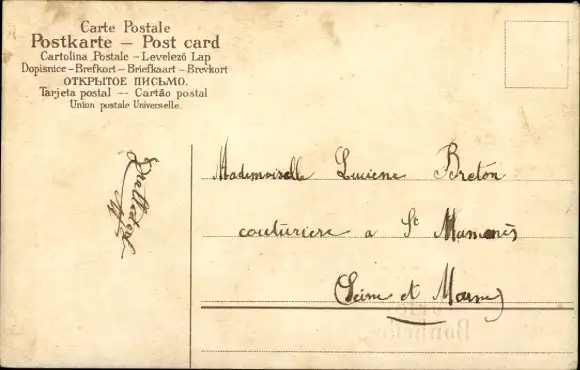 Carte Postale
Postkarte – Post card
Cartolina Postale – Levelező Lap
Dopisnice – Brefkort – Briefkaart – Brevkort
ОТКРЫТОЕ ПИСЬМО.
Tarjeta postal –– Cartão postal
Union postale Universelle.
Mademoiselle Lucienne Breton
couturiere a St Mammès
(Seine et Marne)